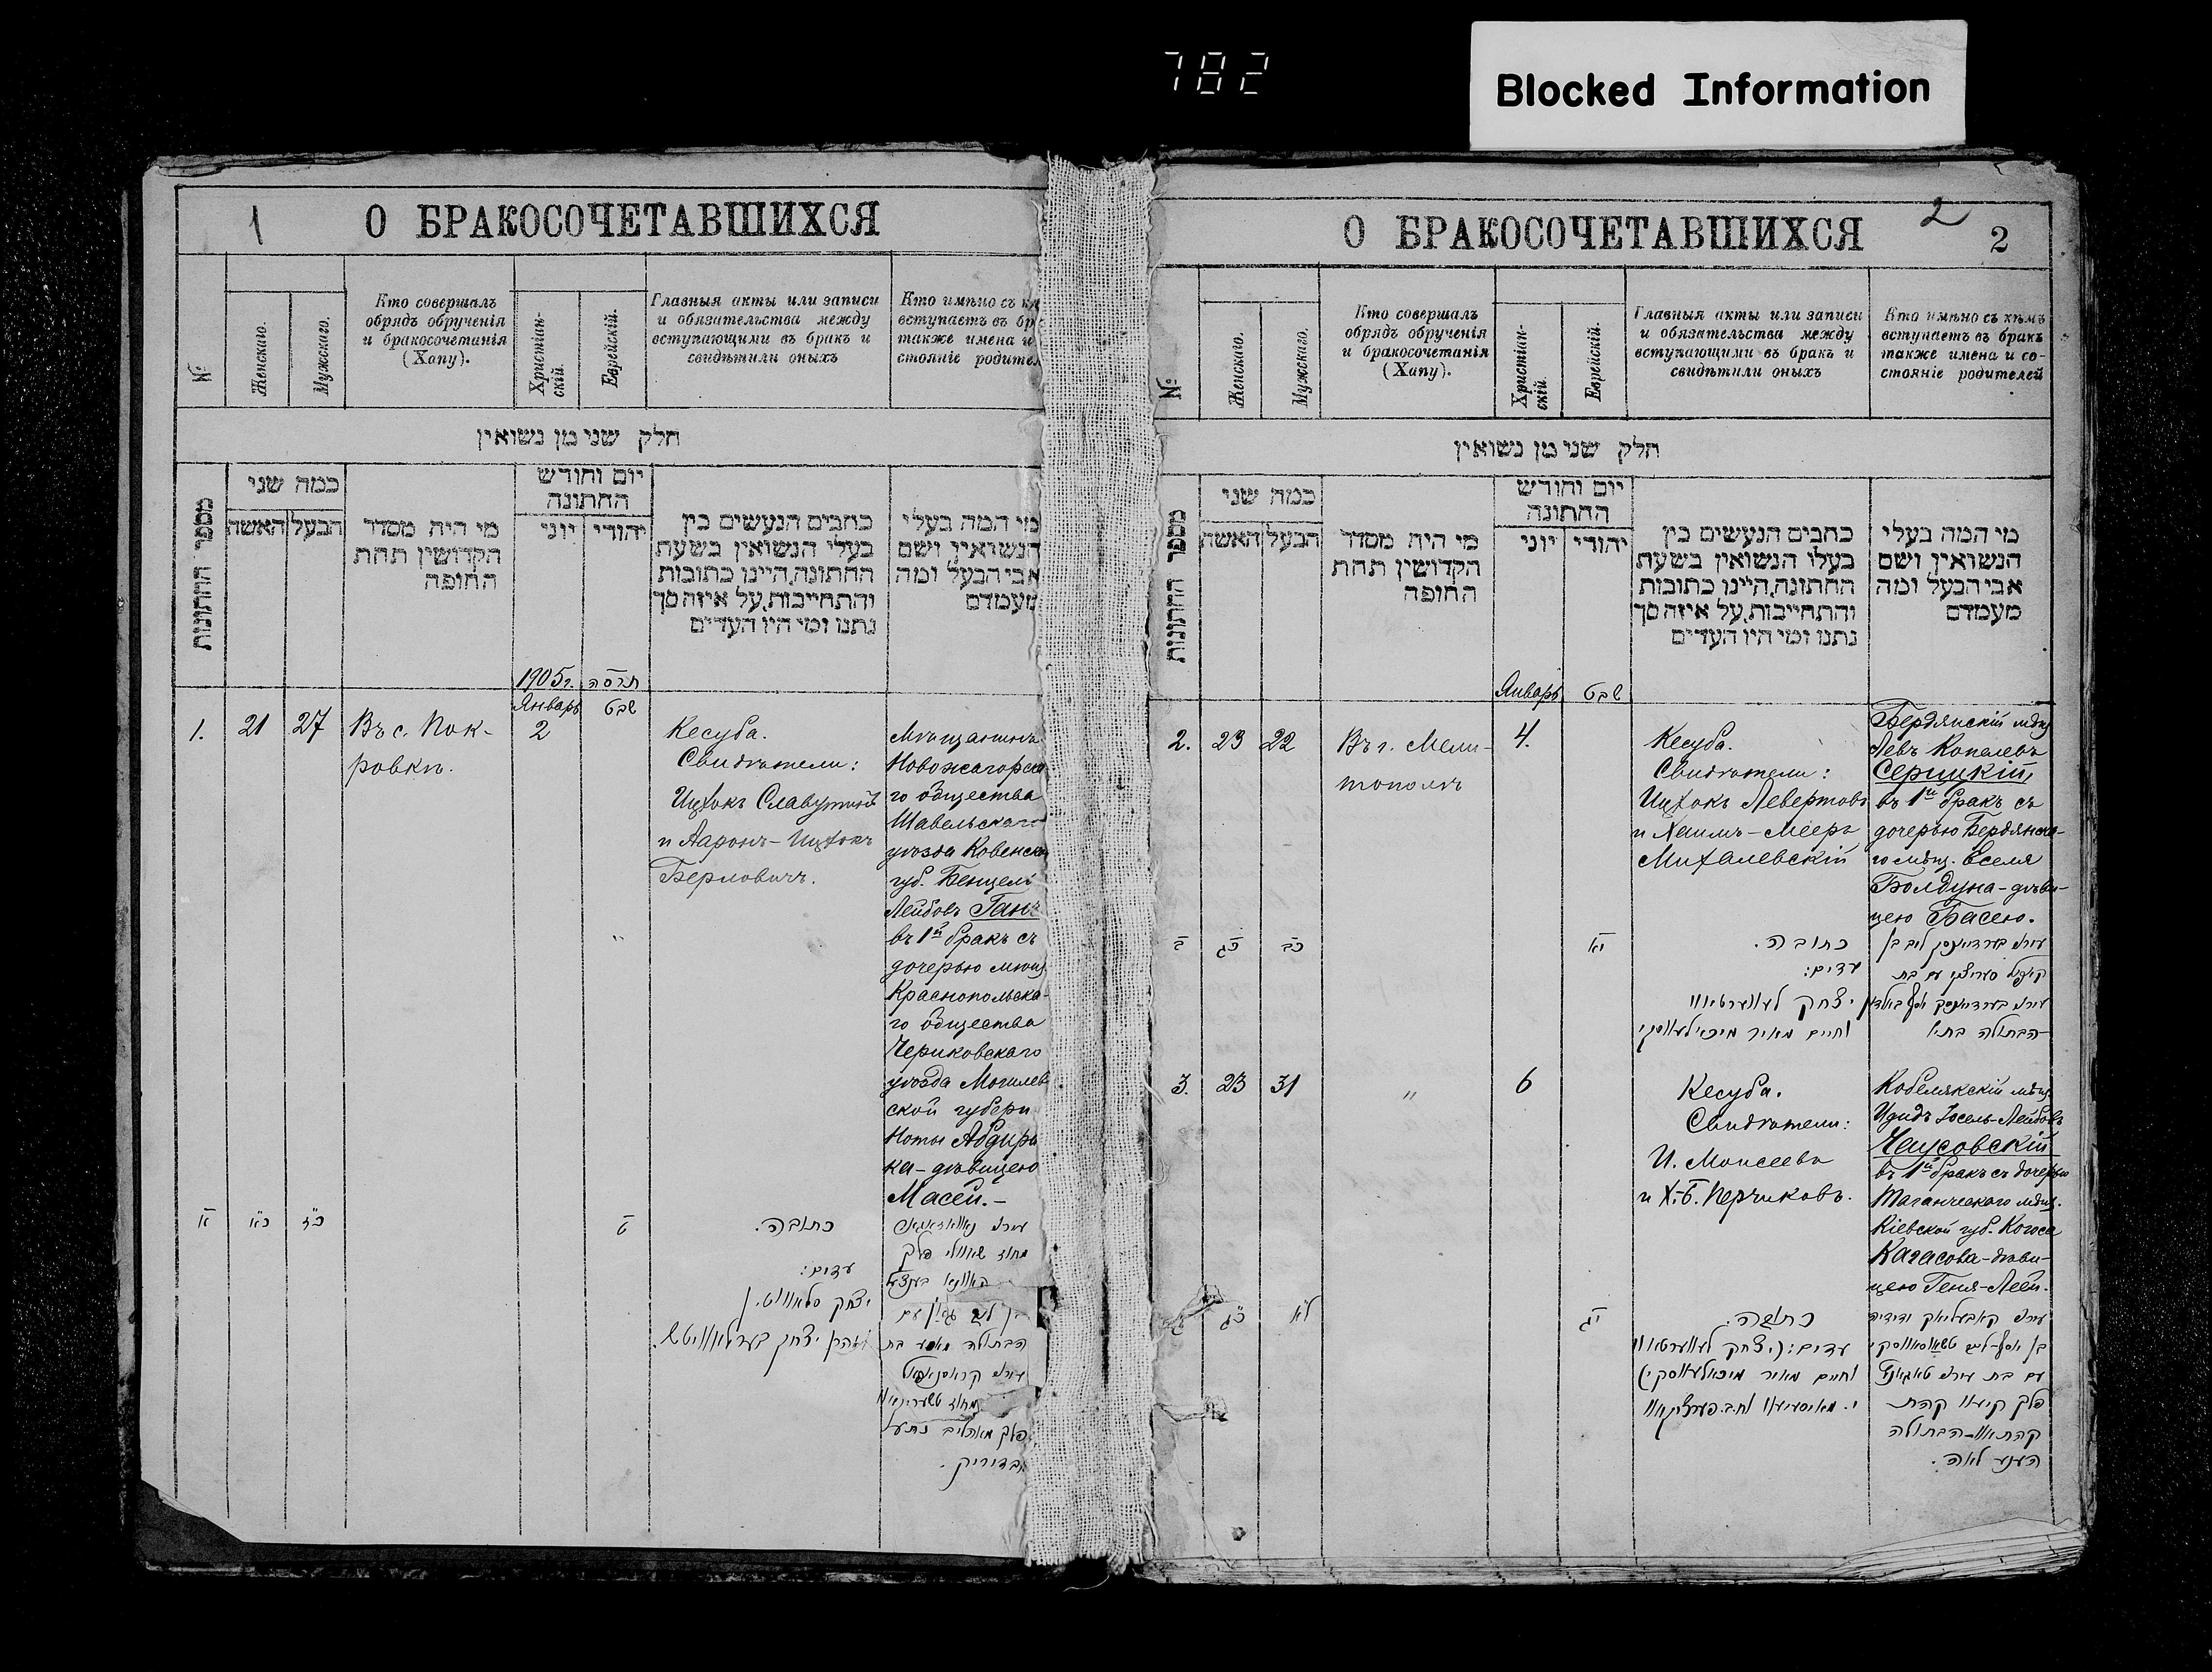 782
Blocked Information
1
О БРАКОСОЧЕТАВШИХСЯ
№
Женскаго.
Мужскаго.
Кто совершалъ
обрядъ обрученія
и бракосочетанія
(Хупу).
Христіан-
скій.
Еврейскій.
Главныя акты или записи
и обязательства между
вступающими въ бракъ и
свидѣтили оныхъ
Кто имѣно съ
вступаетъ въ
также имена и
стояніе
חלק שני מן נשואין
מספר החתונות
כמה שני
האשה
הבעל
מי היה מסדר
הקדושין תחת
החופה
יום וחודש
החתונה
יוני
יהודי
כתבים הנעשים בין
בעלי הנשואין בשעת
החתונה,היינו כתובות
והתחייבות,על איזה סך
נתנו ומי היו העדים
מי המה בעלי
הנשואין ושם
אבי הבעל ומה
מעמדם
1905г.
תרס״ה
Январь
שבט
1.
21
27
Въ с. Пок-
ровкѣ.
2
Кесуба.
Свидѣтели:
Ицхокъ Славутинъ
и Ааронъ-Ицхокъ
Берловичъ.
Мѣщанинъ
го общества
Шавельскаго
уѣзда
губ. Бенцель
Лейбовъ
въ 1й бракъ съ
дочерью мѣщ.
Краснопольска-
го общества
Чериковскаго
уѣзда
ской губерн
Ноты Абдир
ка-дѣвицею
Масей.-
א
כ״א
כ״ז
ט
כתובה.
עדים:
יצחק סלאוויטין
ואהרן יצחק בערלאוויטש.
2
О БРАКОСОЧЕТАВШИХСЯ
2
№
Женскаго.
Мужскаго.
Кто совершалъ
обрядъ обрученія
и бракосочетанія
(Хупу).
Христіан-
скій.
Еврейскій.
Главныя акты или записи
и обязательства между
вступающими въ бракъ и
свидѣтили оныхъ
Кто имѣно съ кѣмъ
вступаетъ въ бракъ
также имена и со-
стояніе родителей
חלק שני מן נשואין
מספר החתונות
כמה שני
האשה
הבעל
מי היה מסדר
הקדושין תחת
החופה
יום וחודש
החתונה
יוני
יהודי
כתבים הנעשים בין
בעלי הנשואין בשעת
החתונה,היינו כתובות
והתחייבות,על איזה סך
נתנו ומי היו העדים
מי המה בעלי
הנשואין ושם
אבי הבעל ומה
מעמדם
Январь
שבט
2.
23
22
Въ г. Мели-
тополѣ
4.
Кесуба.
Свидѣтели:
Ицхокъ Левертовъ
и Хаимъ-Мееръ
Михалевскій
Бердянскій мѣщ
Левъ Копелевъ
Серицкій,
въ 1й бракъ съ
дочерью Бердянска-
го мѣщ. Еселя
Болдуна-дѣви-
цею Басею.
ב
כ״ג
כ״ב
י״א
כתובה.
עדים:
יצחק לעווערטאוו
וחיים מאיר מיכאלעווסקי
הבתולה
3.
23
31
"
6
Кесуба.
Свидѣтели:
И. Моисеевъ
и Х.-Б. Перчиковъ.
Кобелякскій мѣщ.
Іосель-Лейбовъ
Чаусовскій
въ 1й бракъ съ дочерью
Таганческаго мѣщ.
Кіевской губ. Когоса
Кагасова-дѣви-
цею Геня-Леей.
כ״ג
ל״א
י״ג
כתובה.
עדים: (יצחק לעווערטאוו
וחיים מאיר מיכאלעווסקי)
פלך קיעוו קהת
קהתאוו-הבתולה
הענע לאה.